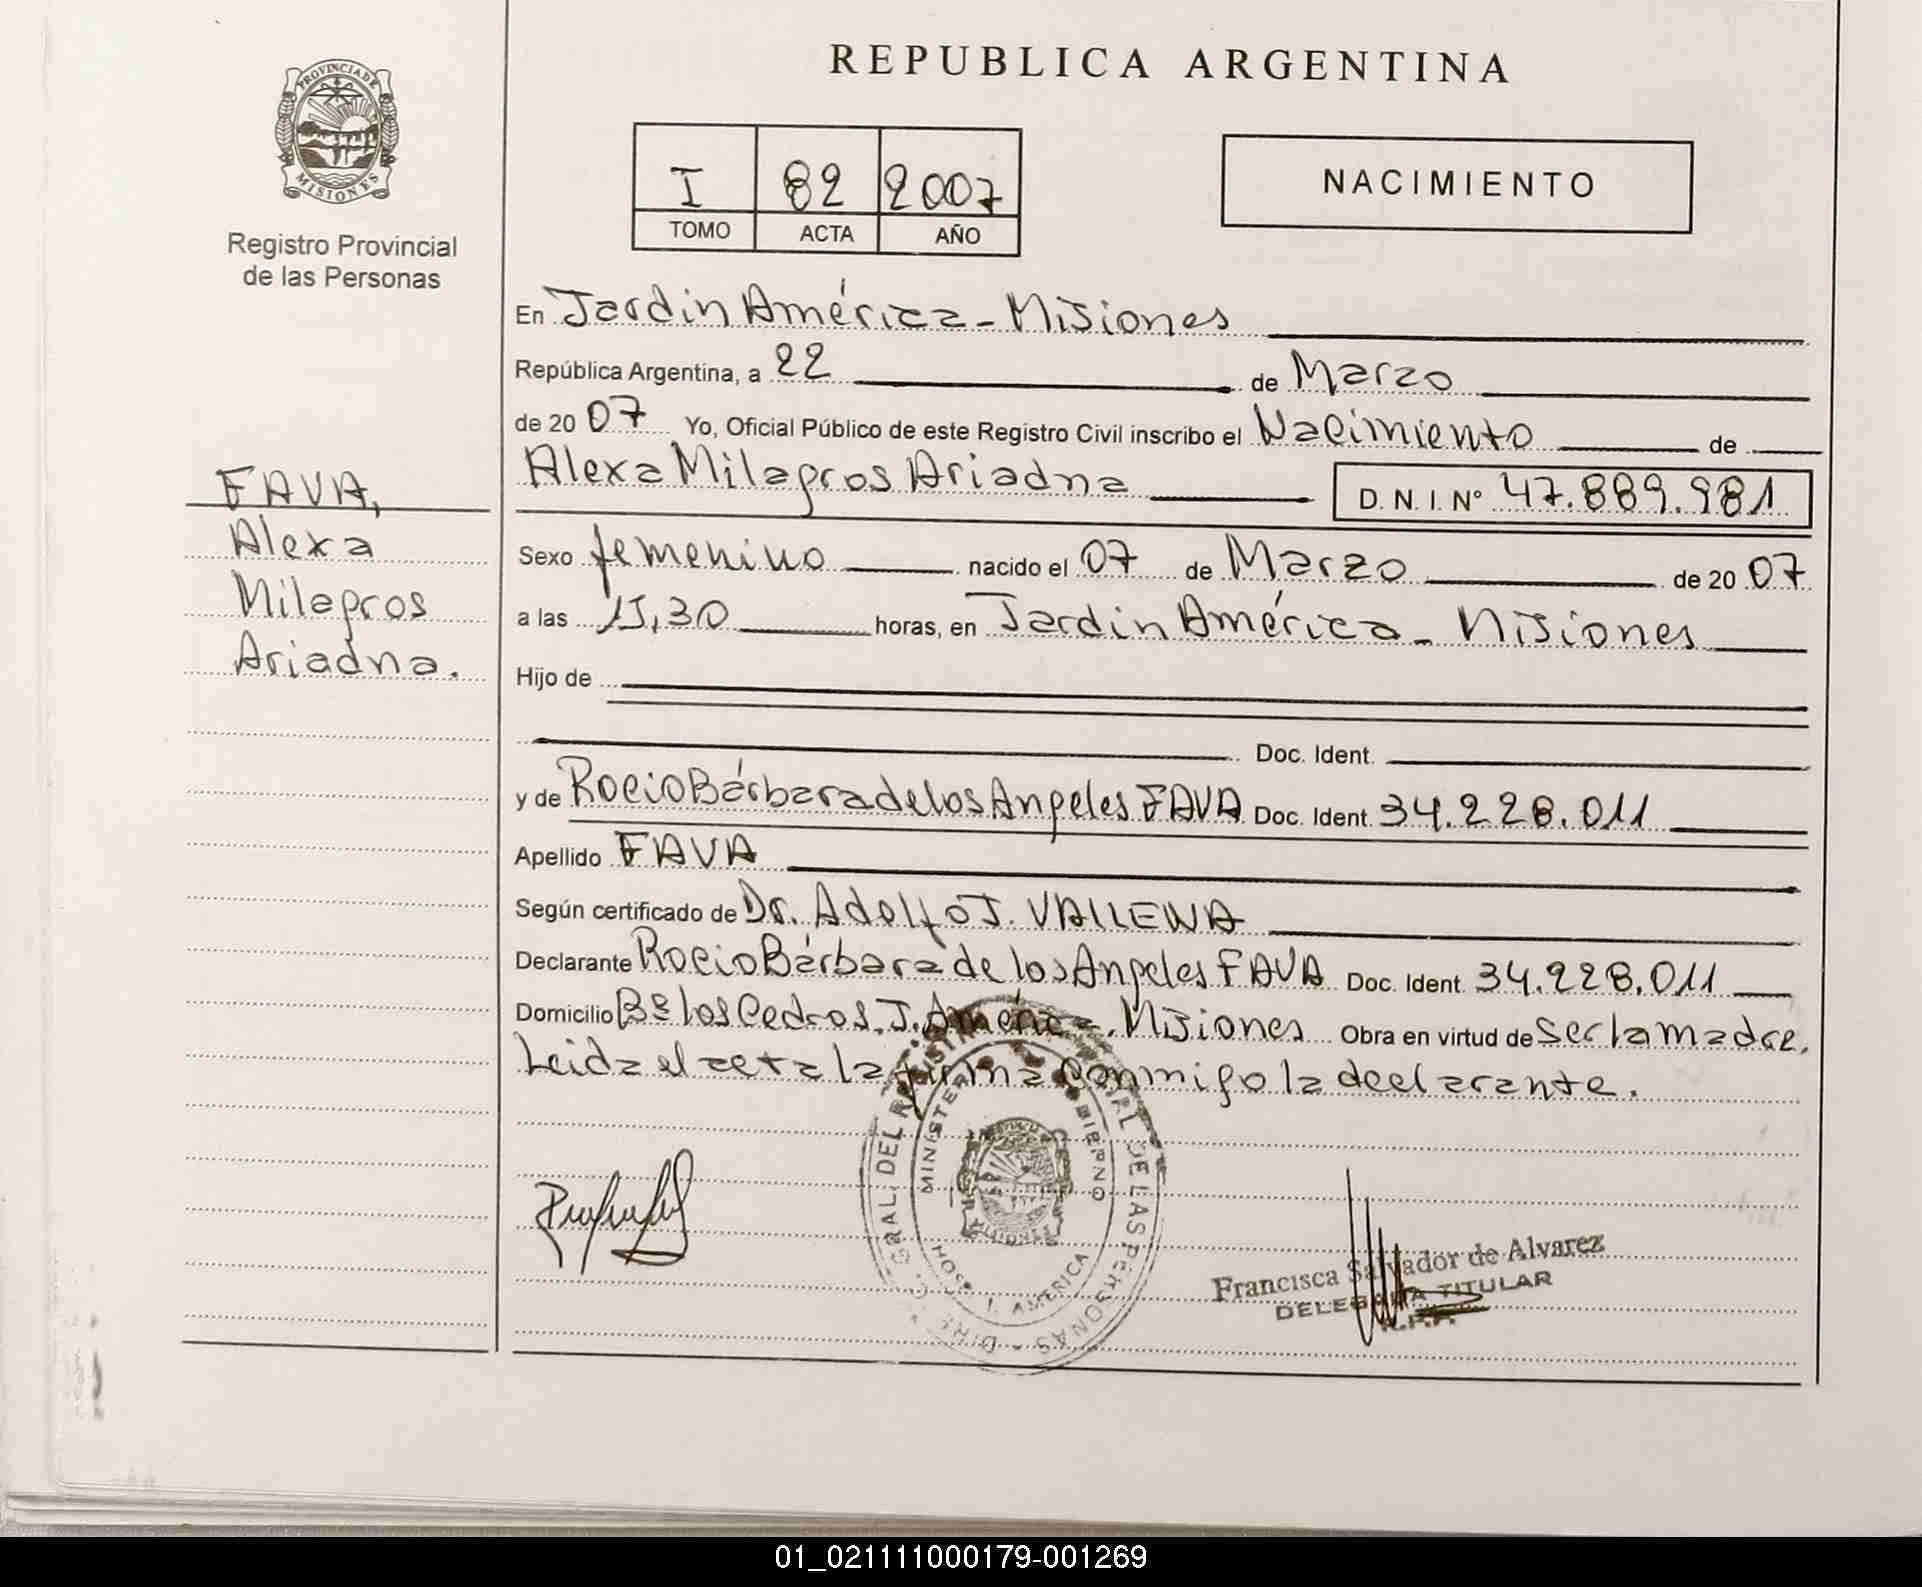 REPUBLICA ARGENTINA
PROVINCIA DE
MISIONES
Registro Provincial
de las Personas
I 82 2007
TOMO ACTA AÑO
NACIMIENTO
En Jardín América - Misiones
República Argentina, a 22 de Marzo
de 2007 Yo, Oficial Público de este Registro Civil inscribo el Nacimiento de
Alexa Milagros Ariadna D. N. I. Nº 47.889.981
FAVA,
Alexa
Milagros
Ariadna.
Sexo femenino nacido el 07 de Marzo de 2007
a las horas, en Jardín América - Misiones
Hijo de
Doc. Ident.
y de Rocio Bárbara de los Angeles FAVA Doc. Ident. 34.228.011
Apellido FAVA
Según certificado de Dr. Adolfo J.
Declarante Rocio Bárbara de los Angeles FAVA Doc. Ident. 34.228.011
Domicilio Bº los Cedros. J. América. Misiones Obra en virtud de ser la madre.
Leida el acta la firma conmigo la declarante.
GRAL. DEL REGISTRO DE LAS PERSONAS
MINISTER BIERNO
MISIONES
HOSP. J. AMERICA
Francisca Salvador de Alvarez
DELEGADA TITULAR
R.P.P.
01_021111000179-001269